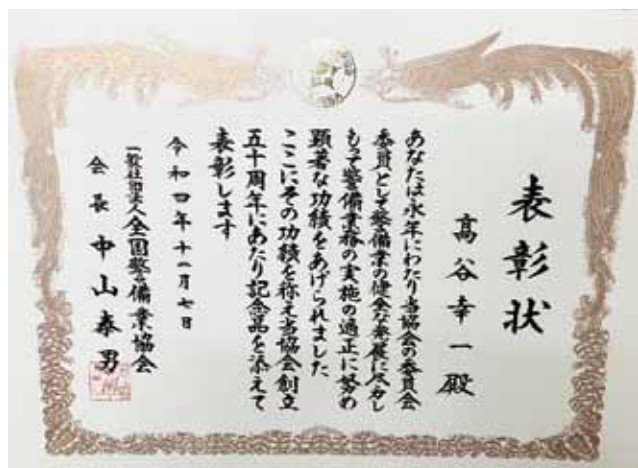 表彰状
髙谷幸一殿
あなたは永年にわたり当協会の委員会
委員として警備業の健全な発展に尽力し
もって警備業務の実施の適正に努め
顕著な功績をあげられました
ここにその功績を称え当協会創立
五十周年にあたり記念品を添えて
表彰します
令和四年十一月七日
一般社団法人全国警備業協会
会長中山泰男